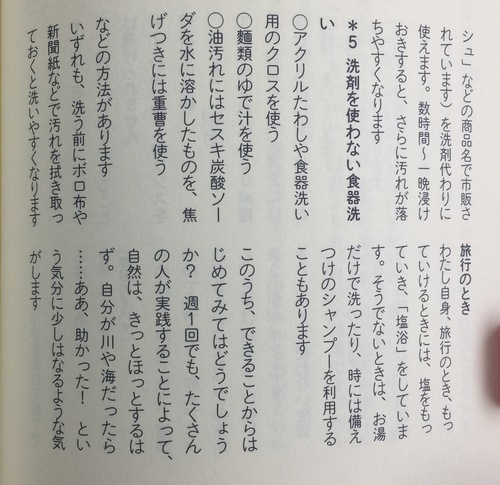 シュ」などの商品名で市販さ
れています）を洗剤代わりに
使えます。数時間〜一晩浸け
おきすると、さらに汚れが落
ちやすくなります
＊5 洗剤を使わない食器洗
い
○アクリルたわしや食器洗い
用のクロスを使う
○麺類のゆで汁を使う
○油汚れにはセスキ炭酸ソー
ダを水に溶かしたものを、焦
げつきには重曹を使う
などの方法があります
いずれも、洗う前にボロ布や
新聞紙などで汚れを拭き取っ
ておくと洗いやすくなります
旅行のとき
わたし自身、旅行のとき、もっ
ていけるときには、塩をもっ
ていき、「塩浴」をしていま
す。そうでないときは、お湯
だけで洗ったり、時には備え
つけのシャンプーを利用する
こともあります
このうち、できることからは
じめてみてはどうでしょう
か？ 週1回でも、たくさん
の人が実践することによって、
自然は、きっとほっとするは
ず。自分が川や海だったら
……ああ、助かった！ とい
う気分に少しはなるような気
がします